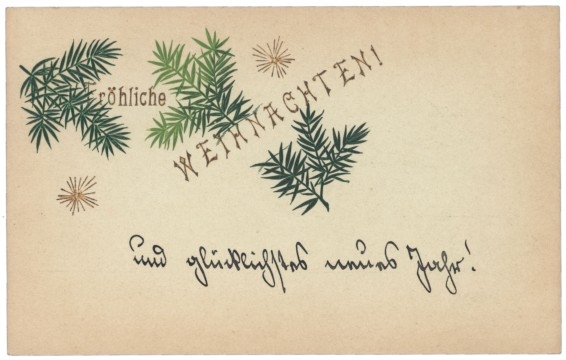 Fröhliche
WEIHNACHTEN!
und glücklichstes neues Jahr!